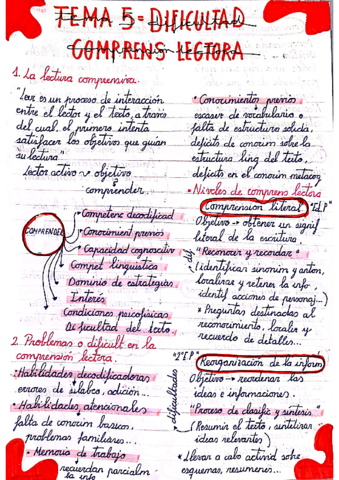 TEMA 5= DIFICULTAD
COMPRENS LECTORA
1. La lectura comprensiva.
"Leer es un proceso de interacción
entre el lector y el texto, a través
del cual, el primero intenta
satisfacer los objetivos que guían
su lectura"
lector activo → objetivo
comprender.
COMPRENDER
Competenc decodificad
Conocimient previos
Capacidad cognoscitiv
Compet lingüística
Dominio de estrategias
Interés
Condiciones psicofísicas
Dificultad del texto.
2. Problemas o dificult en la
comprensión lectora.
• Habilidades decodificadoras
errores de sílabas, adición...
• Habilidades atencionales
falta de conocim básicos,
problemas familiares...
• Memoria de trabajo
recuerdan parcialm
la info
• Conocimientos previos
escasez de vocabulario o
falta de estructura sólida,
déficits de conocim sobre la
estructura ling del texto,
déficits en el conocim metacog
• Niveles de comprens lectora
Comprensión literal "1º E.P"
Objetivo → obtener un signif
literal de la escritura.
"Reconocer y recordar"
dif
(identificar sinónim y anton,
localizar y retener la info,
identif acciones de personaj...)
* Preguntas destinadas al
reconocimiento, localiz y
recuerdo de detalles...
"2º E.P" Reorganización de la inform
Objetivo → reordenar las
ideas e informaciones.
"Proceso de clasific y síntesis"
dificultades
(Resumir el texto, sintetizar
ideas relevantes)
* Llevan a cabo activid sobre
esquemas, resúmenes...